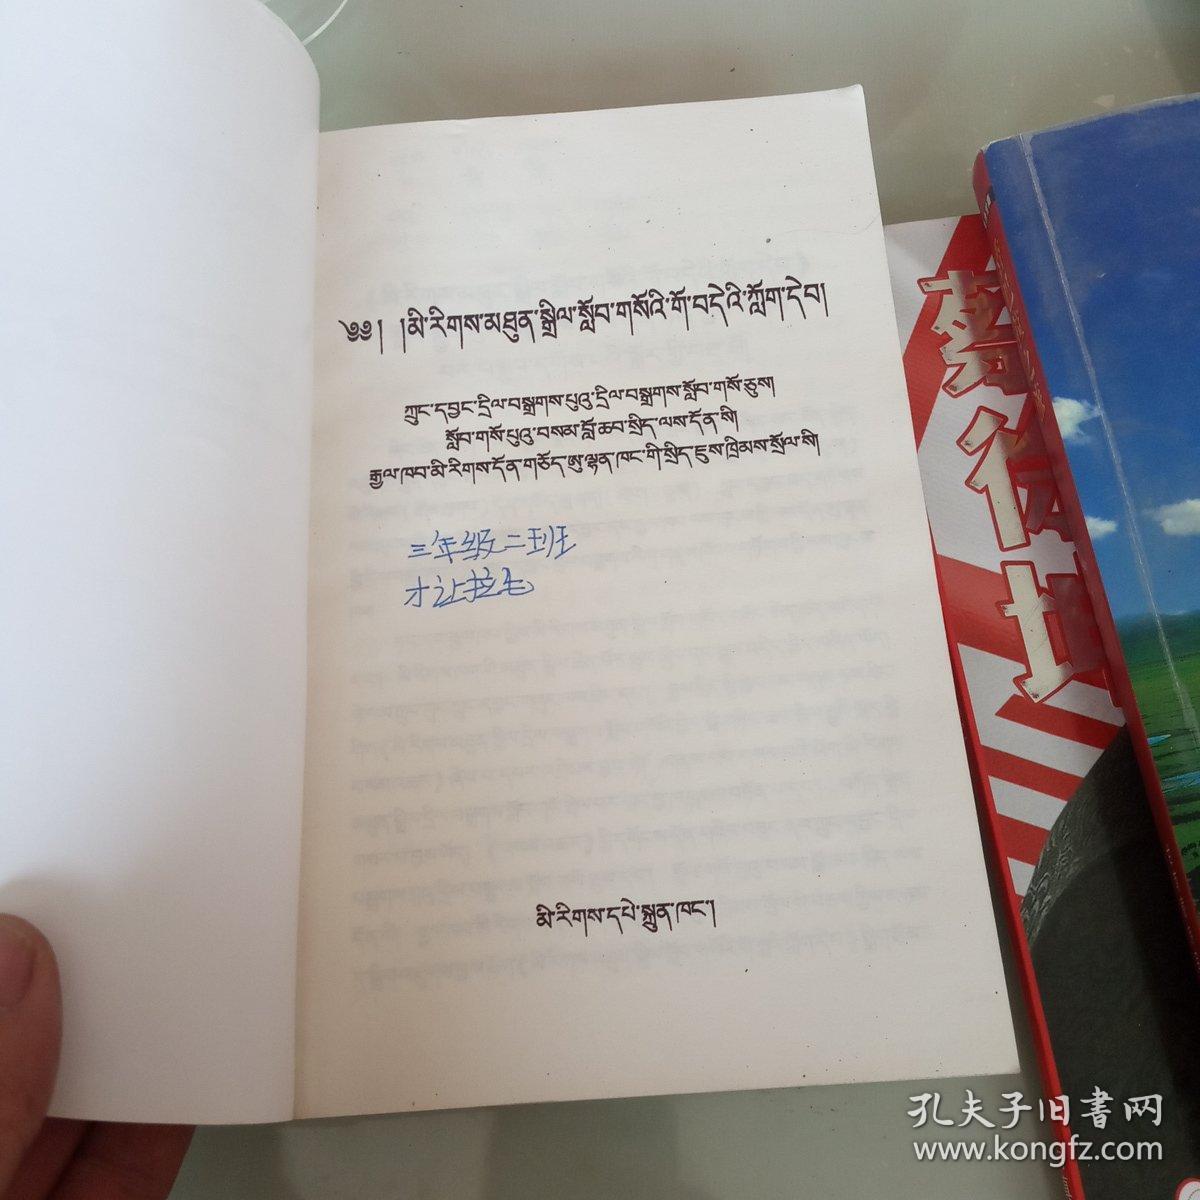 ༄༅། །མི་རིགས་མཐུན་སྒྲིལ་སློབ་གསོའི་གོ་བདེའི་ཀློག་དེབ།
ཀྲུང་དབྱང་དྲིལ་བསྒྲགས་པུའུ་དྲིལ་བསྒྲགས་སློབ་གསོ་ཅུས།
སློབ་གསོ་པུའུ་བསམ་བློ་ཆབ་སྲིད་ལས་དོན་སི།
རྒྱལ་ཁབ་མི་རིགས་དོན་གཅོད་ཨུ་ལྷན་ཁང་གི་སྲིད་ཇུས་ཁྲིམས་སྲོལ་སི།
三年级二班
才让拉毛
མི་རིགས་དཔེ་སྐྲུན་ཁང་།
孔夫子旧書网
www.kongfz.com